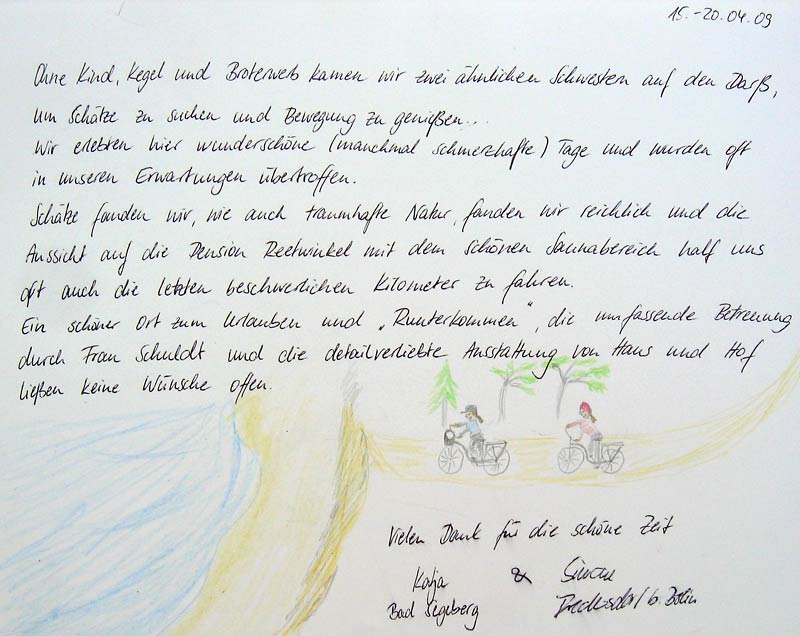 15.-20.04.09
Ohne Kind, Kegel und Broterwerb kamen wir zwei ähnlichen Schwestern auf den Darß,
um Schätze zu suchen und Bewegung zu genießen...
Wir erlebten hier wunderschöne (manchmal schmerzhafte) Tage und wurden oft
in unseren Erwartungen übertroffen.
Schätze fanden wir, wie auch traumhafte Natur, fanden wir reichlich und die
Aussicht auf die Pension Reetwinkel mit dem schönen Saunabereich half uns
oft auch die letzten beschwerlichen Kilometer zu fahren.
Ein schöner Ort zum Urlauben und „Runterkommen“, die umfassende Betreuung
durch Frau Schuldt und die detailverliebte Ausstattung von Haus und Hof
ließen keine Wünsche offen.
Vielen Dank für die schöne Zeit
Katja & Simone
Bad Segeberg b. Berlin